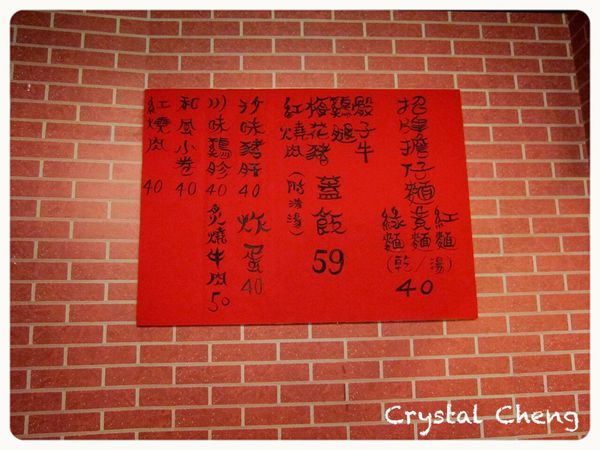 招牌擔仔麵
紅麵
黃麵
綠麵
(乾/湯)
40
骰子牛
雞腿
梅花豬
紅燒肉
蓋飯
59
(附清湯)
沙味豬肝 40
炸蛋 40
川味雞胗 40
炙燒牛肉 50
和風小卷 40
紅燒肉 40
Crystal Cheng